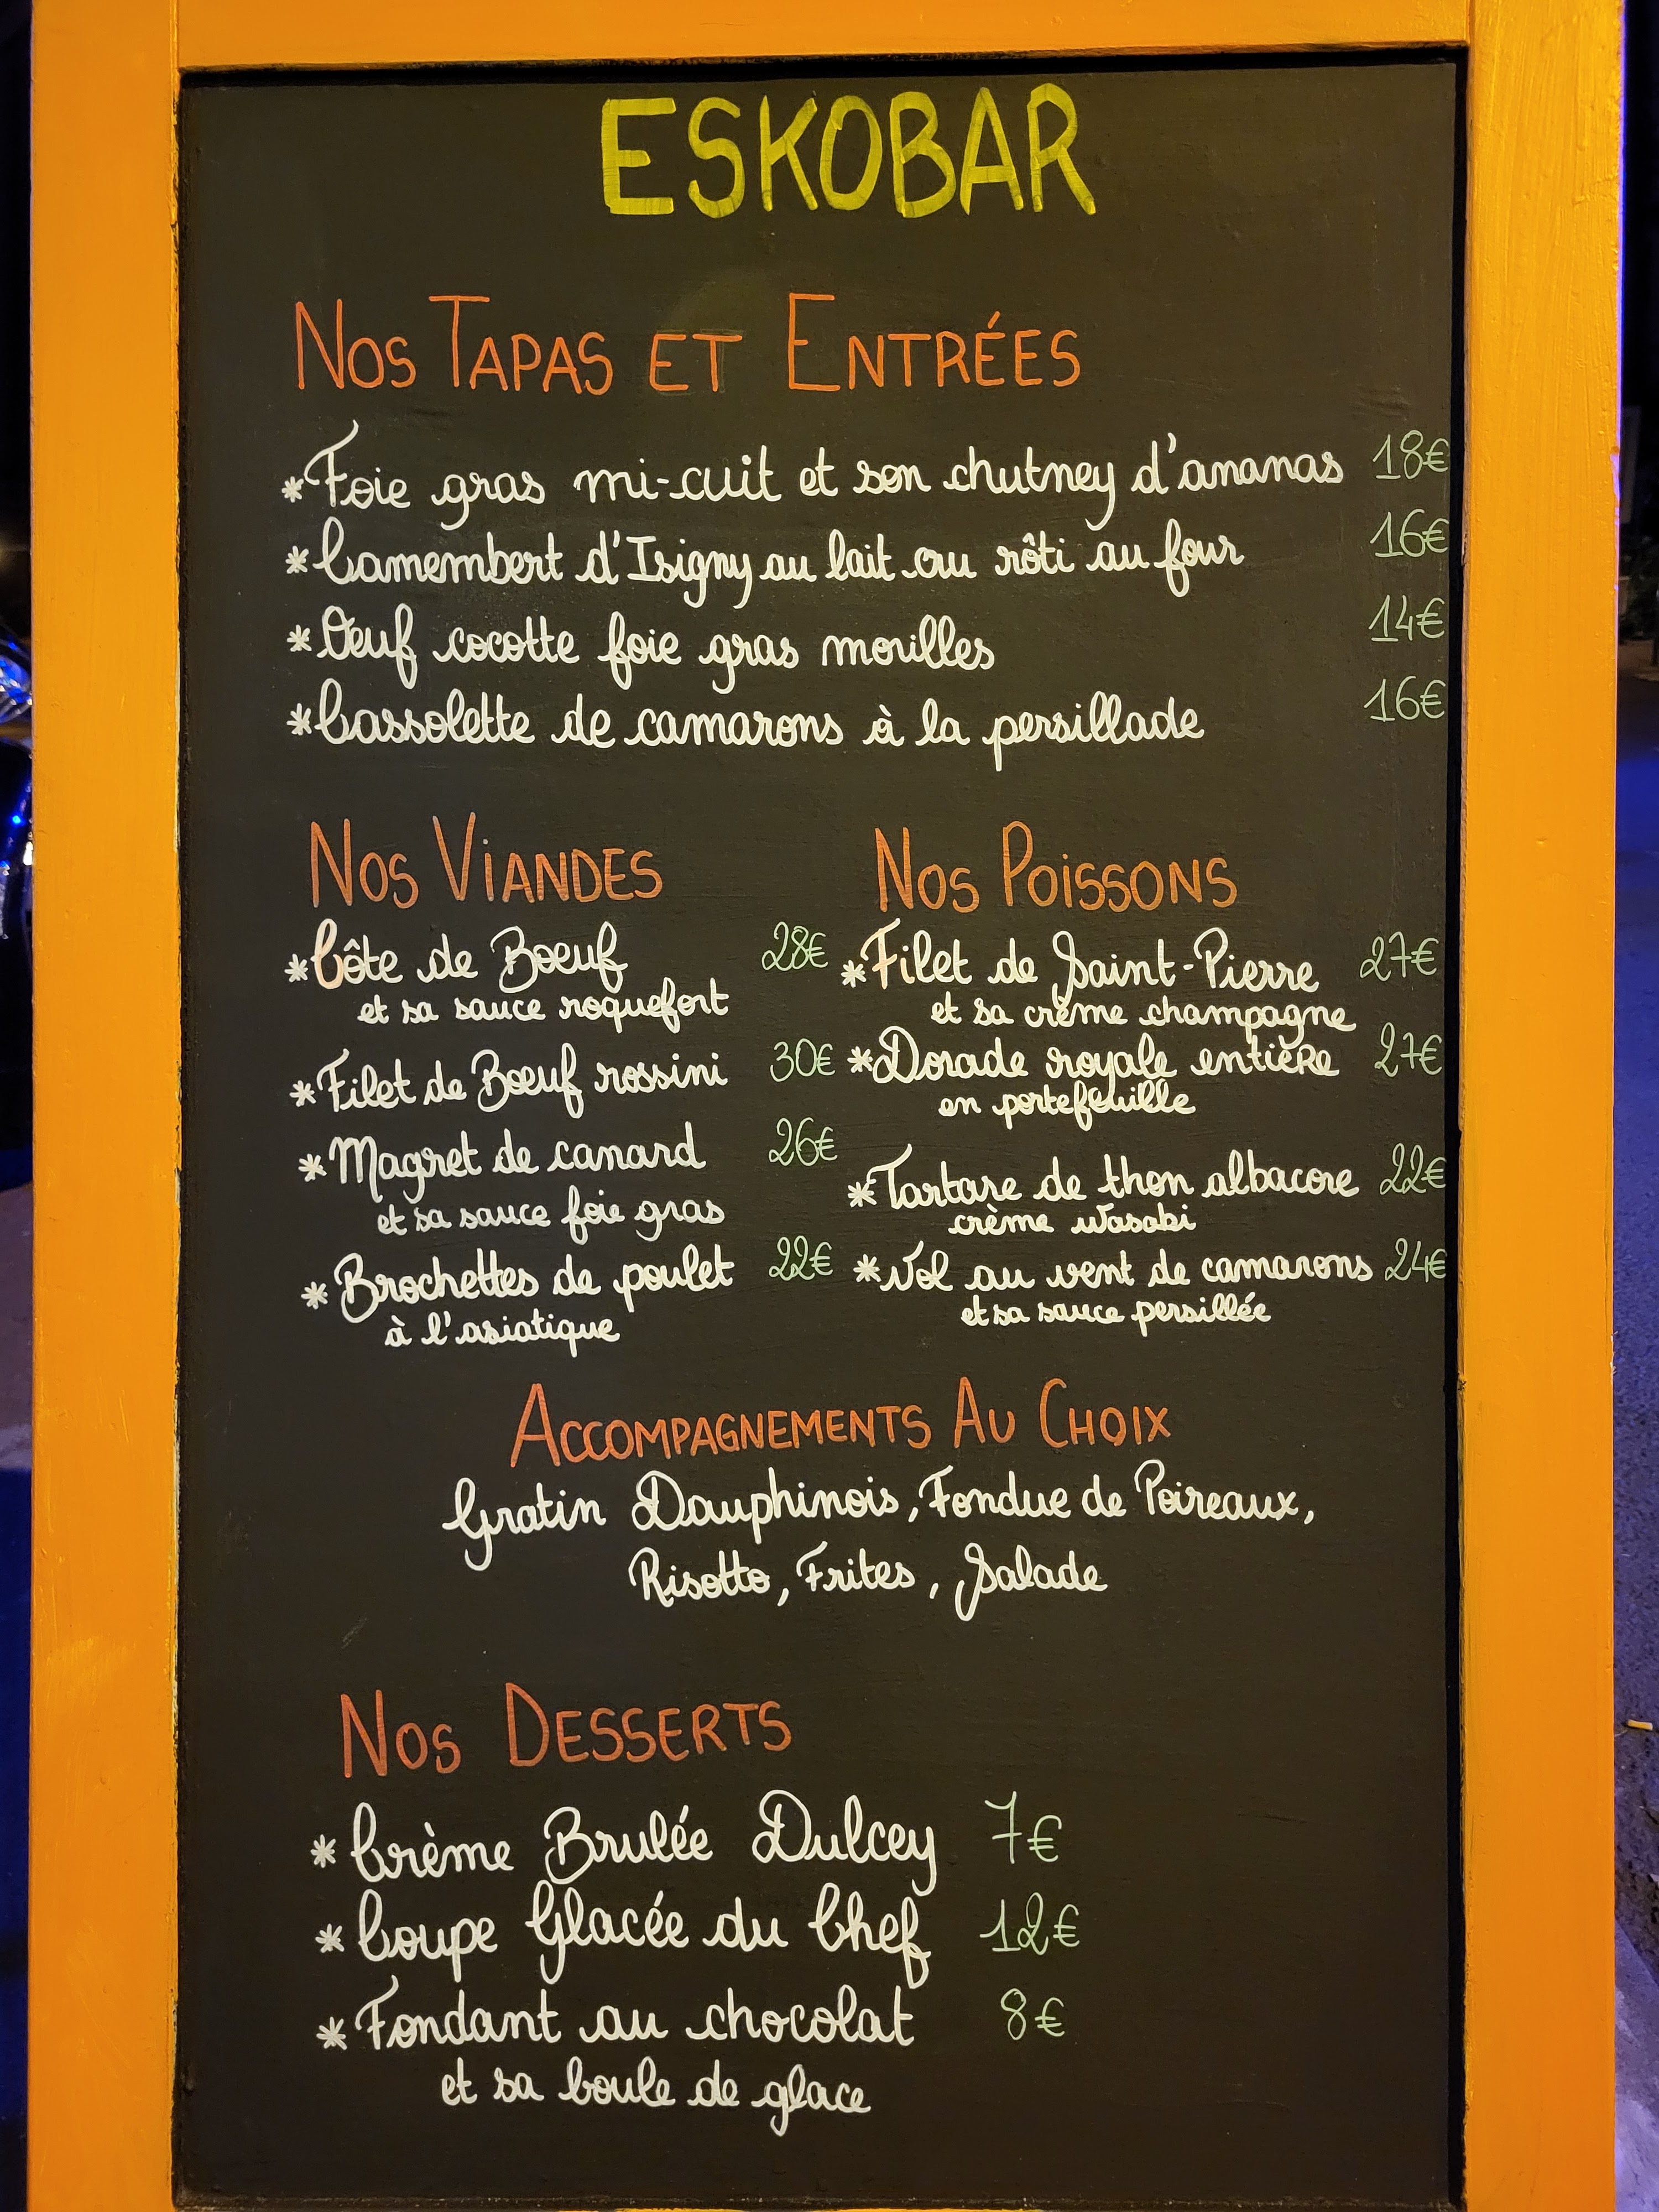 ESKOBAR
NOS TAPAS ET ENTRÉES
*Foie gras mi-cuit et son chutney d'ananas 18€
*Camembert d'Isigny au lait cru rôti au four 16€
*Oeuf cocotte foie gras morilles 14€
*Cassolette de camarons à la persillade 16€
NOS VIANDES
*Côte de Boeuf 28€
et sa sauce roquefort
*Filet de Boeuf rossini 30€
*Magret de canard 26€
et sa sauce foie gras
*Brochettes de poulet 22€
à l'asiatique
NOS POISSONS
*Filet de Saint-Pierre 27€
et sa crème champagne
*Dorade royale entière 27€
en portefeuille
*Tartare de thon albacore 22€
crème wasabi
*Vol au vent de camarons 24€
et sa sauce persillée
ACCOMPAGNEMENTS AU CHOIX
Gratin Dauphinois, Fondue de Poireaux,
Risotto, Frites, Salade
NOS DESSERTS
*Crème Brulée Dulcey 7€
*Coupe Glacée du Chef 12€
*Fondant au chocolat 8€
et sa boule de glace